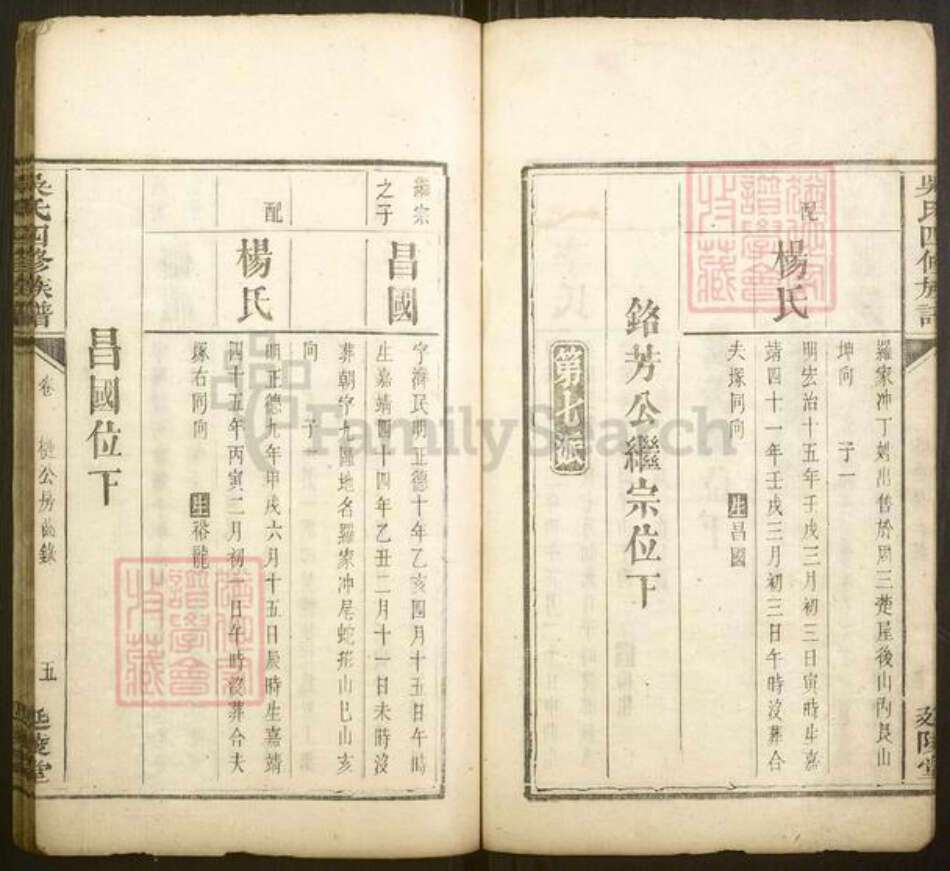 吳氏四修族譜
延陵堂
羅家冲丁刘出售於周三楚屋後山內艮山
坤向 子一
配
楊氏
明宏治十五年壬戌三月初三日寅時生嘉
靖四十一年壬戌三月初三日午時沒葬合
夫塚同向 生昌國
銘芳公繼宗位下
第七派
繼宗
之子
昌國
字濟民明正德十年乙亥四月十五日午時
生嘉靖四十四年乙丑二月十一日未時沒
葬朝字七區地名羅家冲尾蛇形山巳山亥
向 子一
配
楊氏
明正德九年甲戌六月十五日辰時生嘉靖
四十五年丙寅二月初一日午時沒葬合夫
塚右同向 生裕龍
昌國位下
吳氏四修族譜
卷
公房齒錄
五
延陵堂
FamilySearch
譜學會
收藏
譜學會
收藏